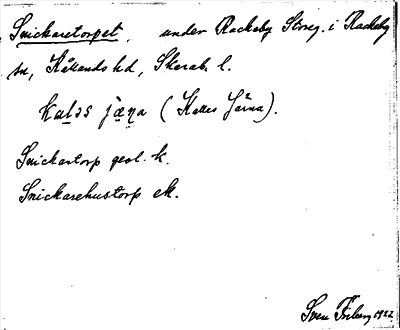 Snickaretorpet, under Rackeby Storeg. i Rackeby
sn, Kållands hd, Skarab. l.
kaləs jæ̣ṇa (Kalles Järna).
Snickartorp geol. k.
Snickarehustorp ek.
Sven Friberg 1922